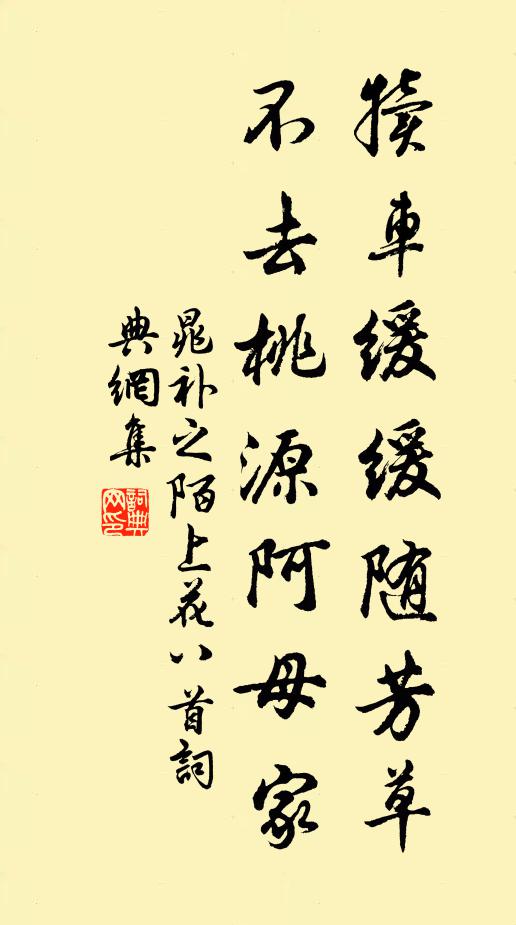 犢車緩緩随芳草
不去桃源阿母家
晁补之陌上花八首詞
典網集
詞典网印